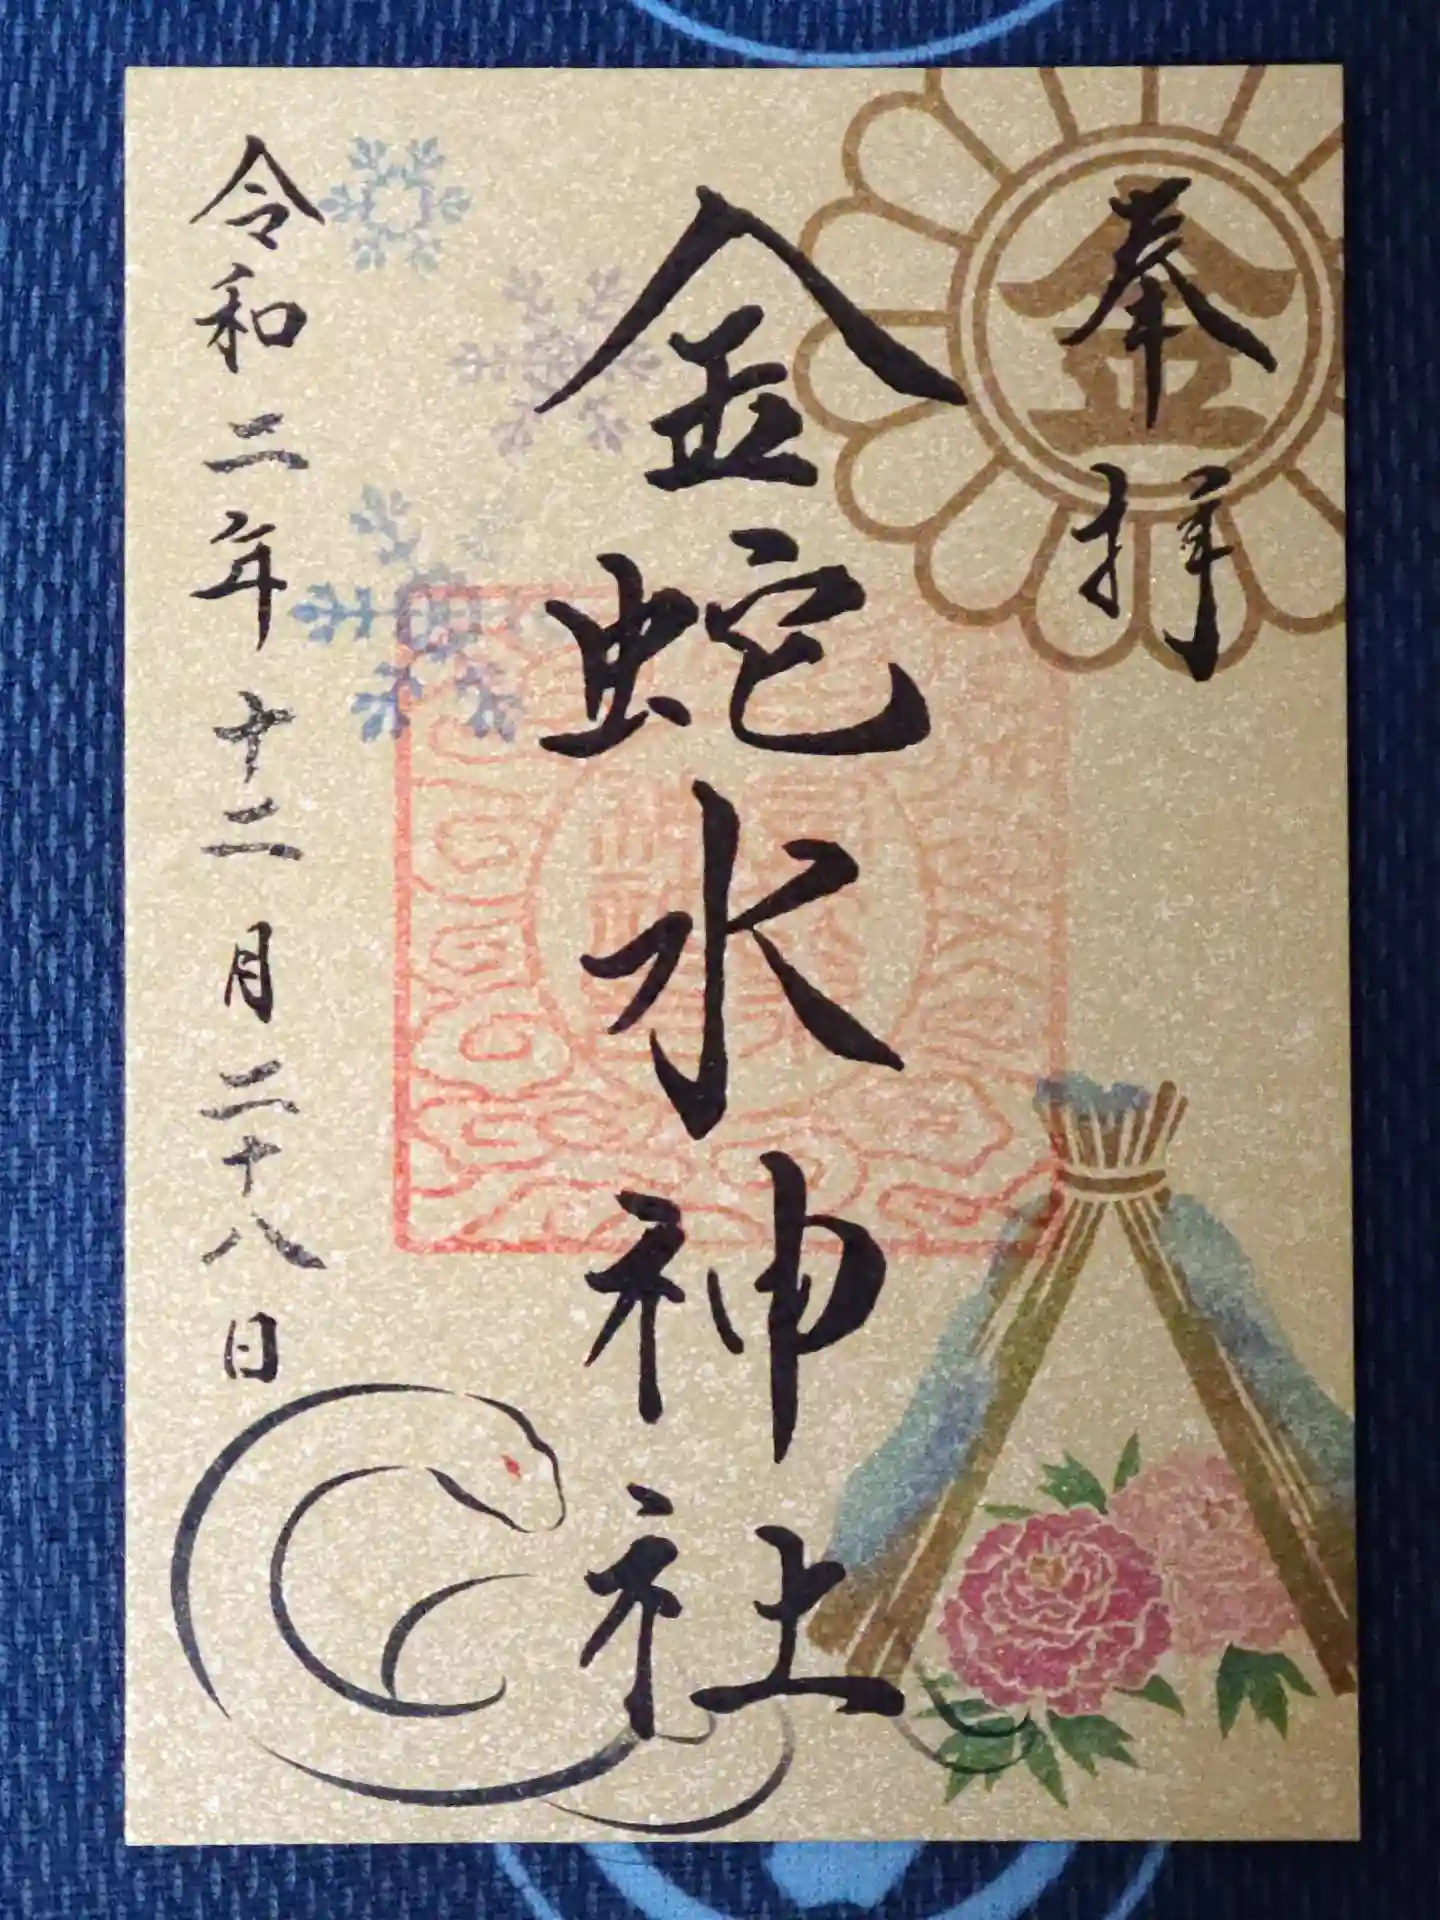 奉拝
金
金蛇水神社
令和二年十二月二十八日